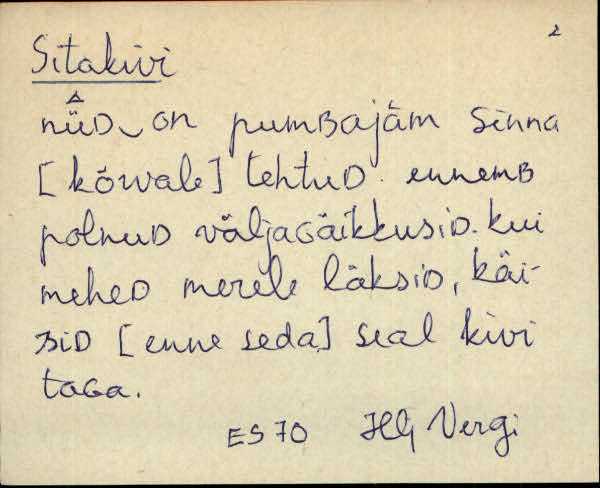 2
Sitakivi
nüüD‿on pumBajäm sinna
[kõrvale] tehtuD. ennemB
polnuD väljaGäikkusiD. kui
meheD merele läksiD, käi-
siD [enne seda] seal kivi
taGa.
ES 70 HLj Vergi